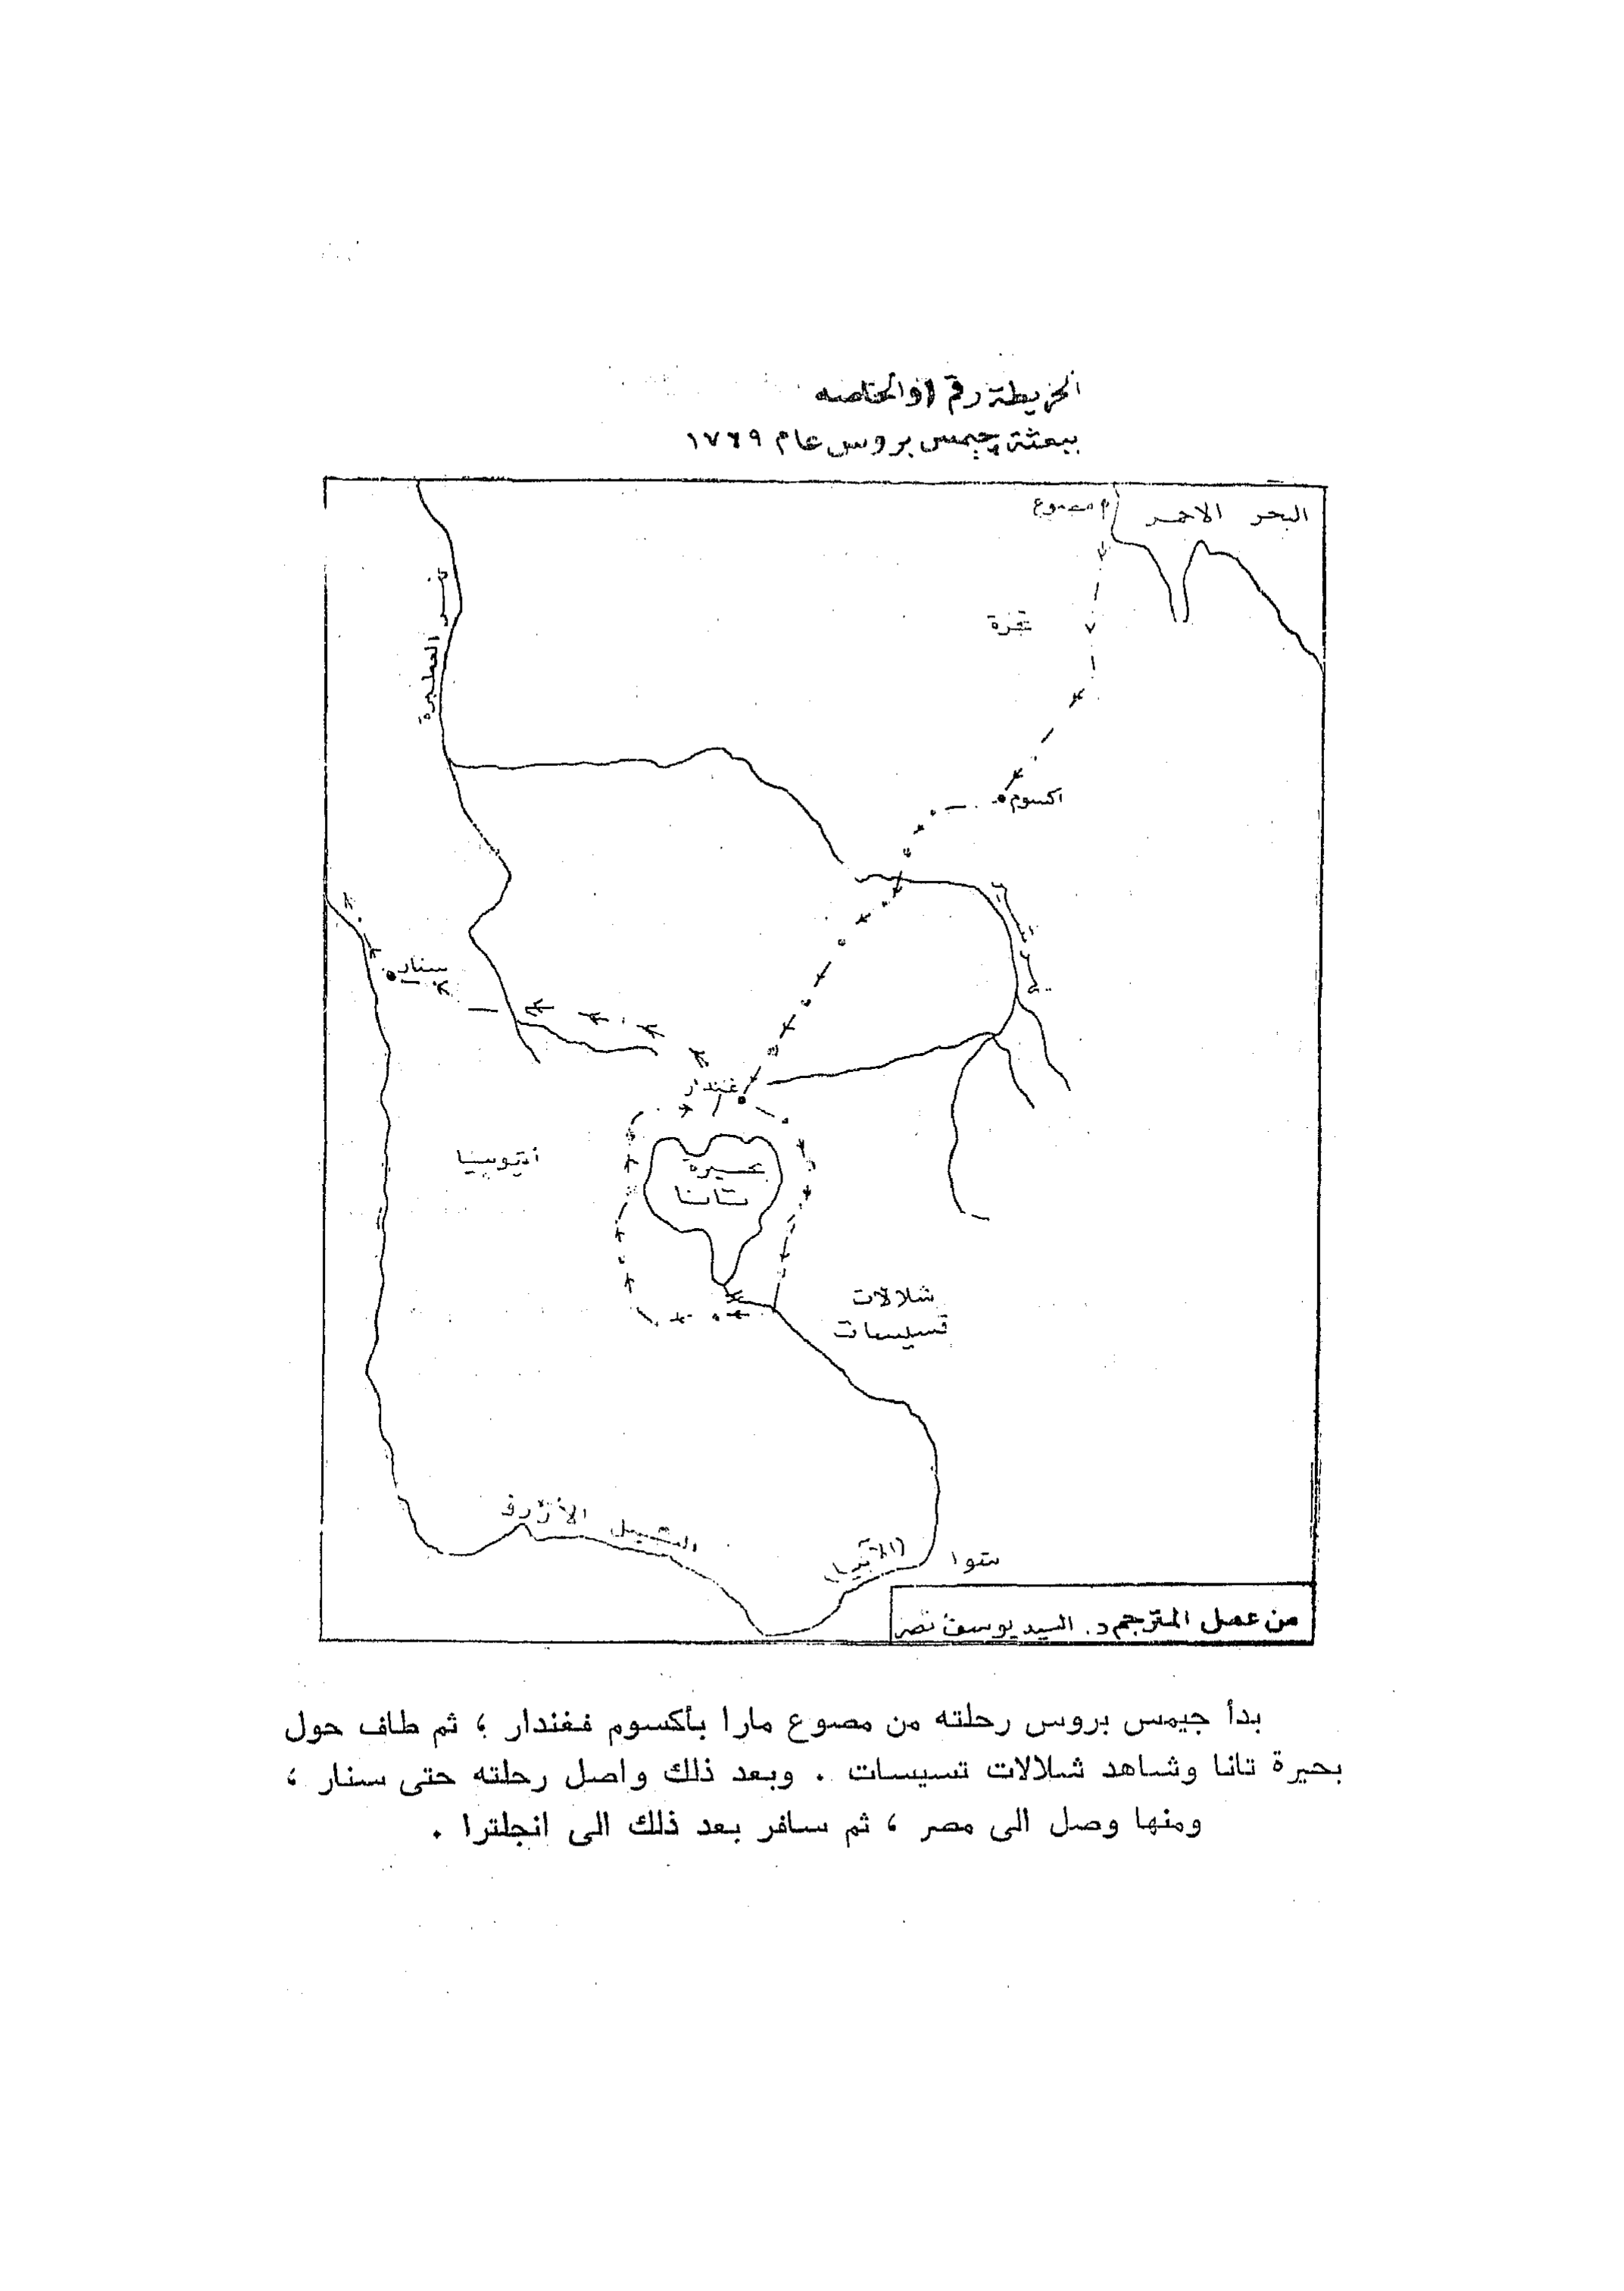 الخريطة رقم ١ والخاصه
ببعثة جيمس بروس عام ١٧٦٩
البحر الاحمر
مصوع
نهر العطبرة
اكسوم
سنار
غندار
اثيوبيا
بحيرة
تانا
شلالات
تسيسات
النيل الأزرق
شوا
من عمل المترجم د. السيد يوسف نصر
بدأ جيمس بروس رحلته من مصوع مارا بأكسوم فغندار ؛ ثم طاف حول
بحيرة تانا وشاهد شلالات تسيسات . وبعد ذلك واصل رحلته حتى سنار ،
ومنها وصل الى مصر ، ثم سافر بعد ذلك الى انجلترا .